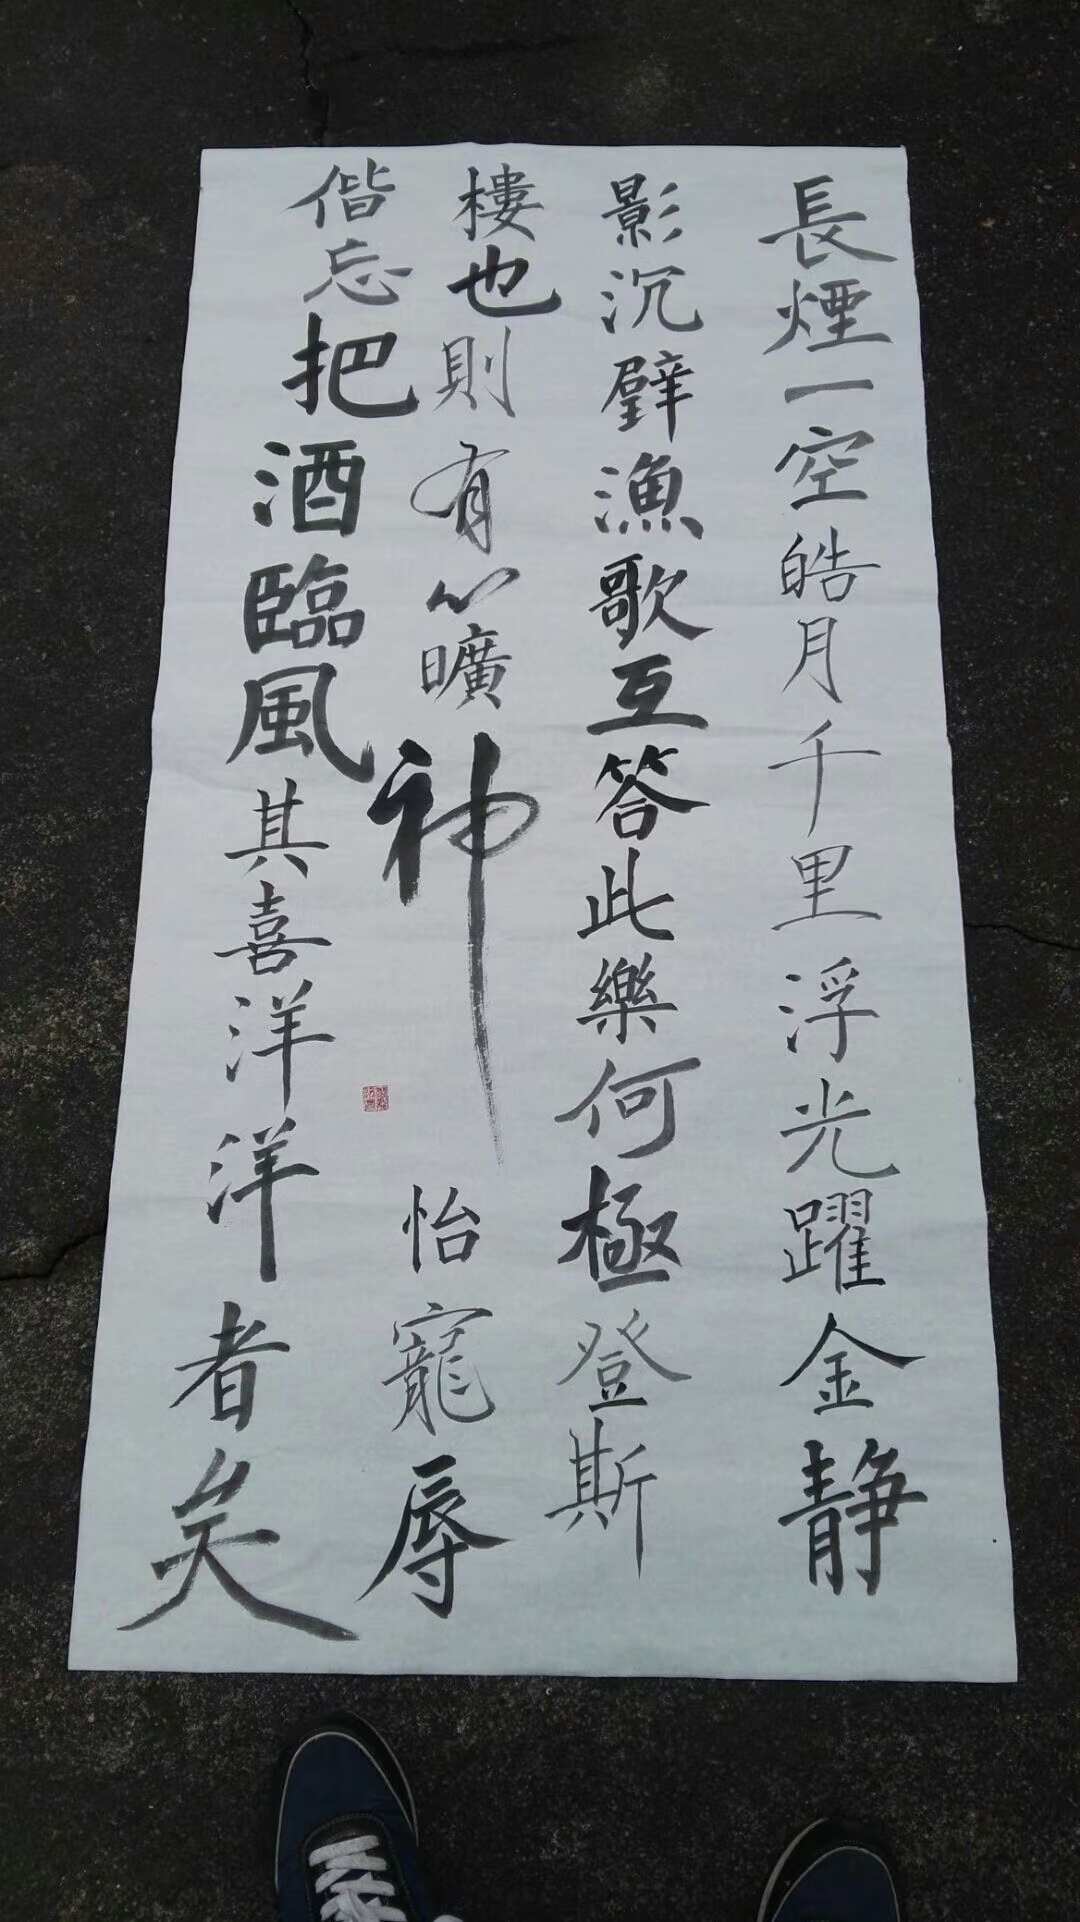 長煙一空皓月千里浮光躍金静
影沉璧漁歌互答此樂何極登斯
樓也則有心曠神怡寵辱
偕忘把酒臨風其喜洋洋者矣